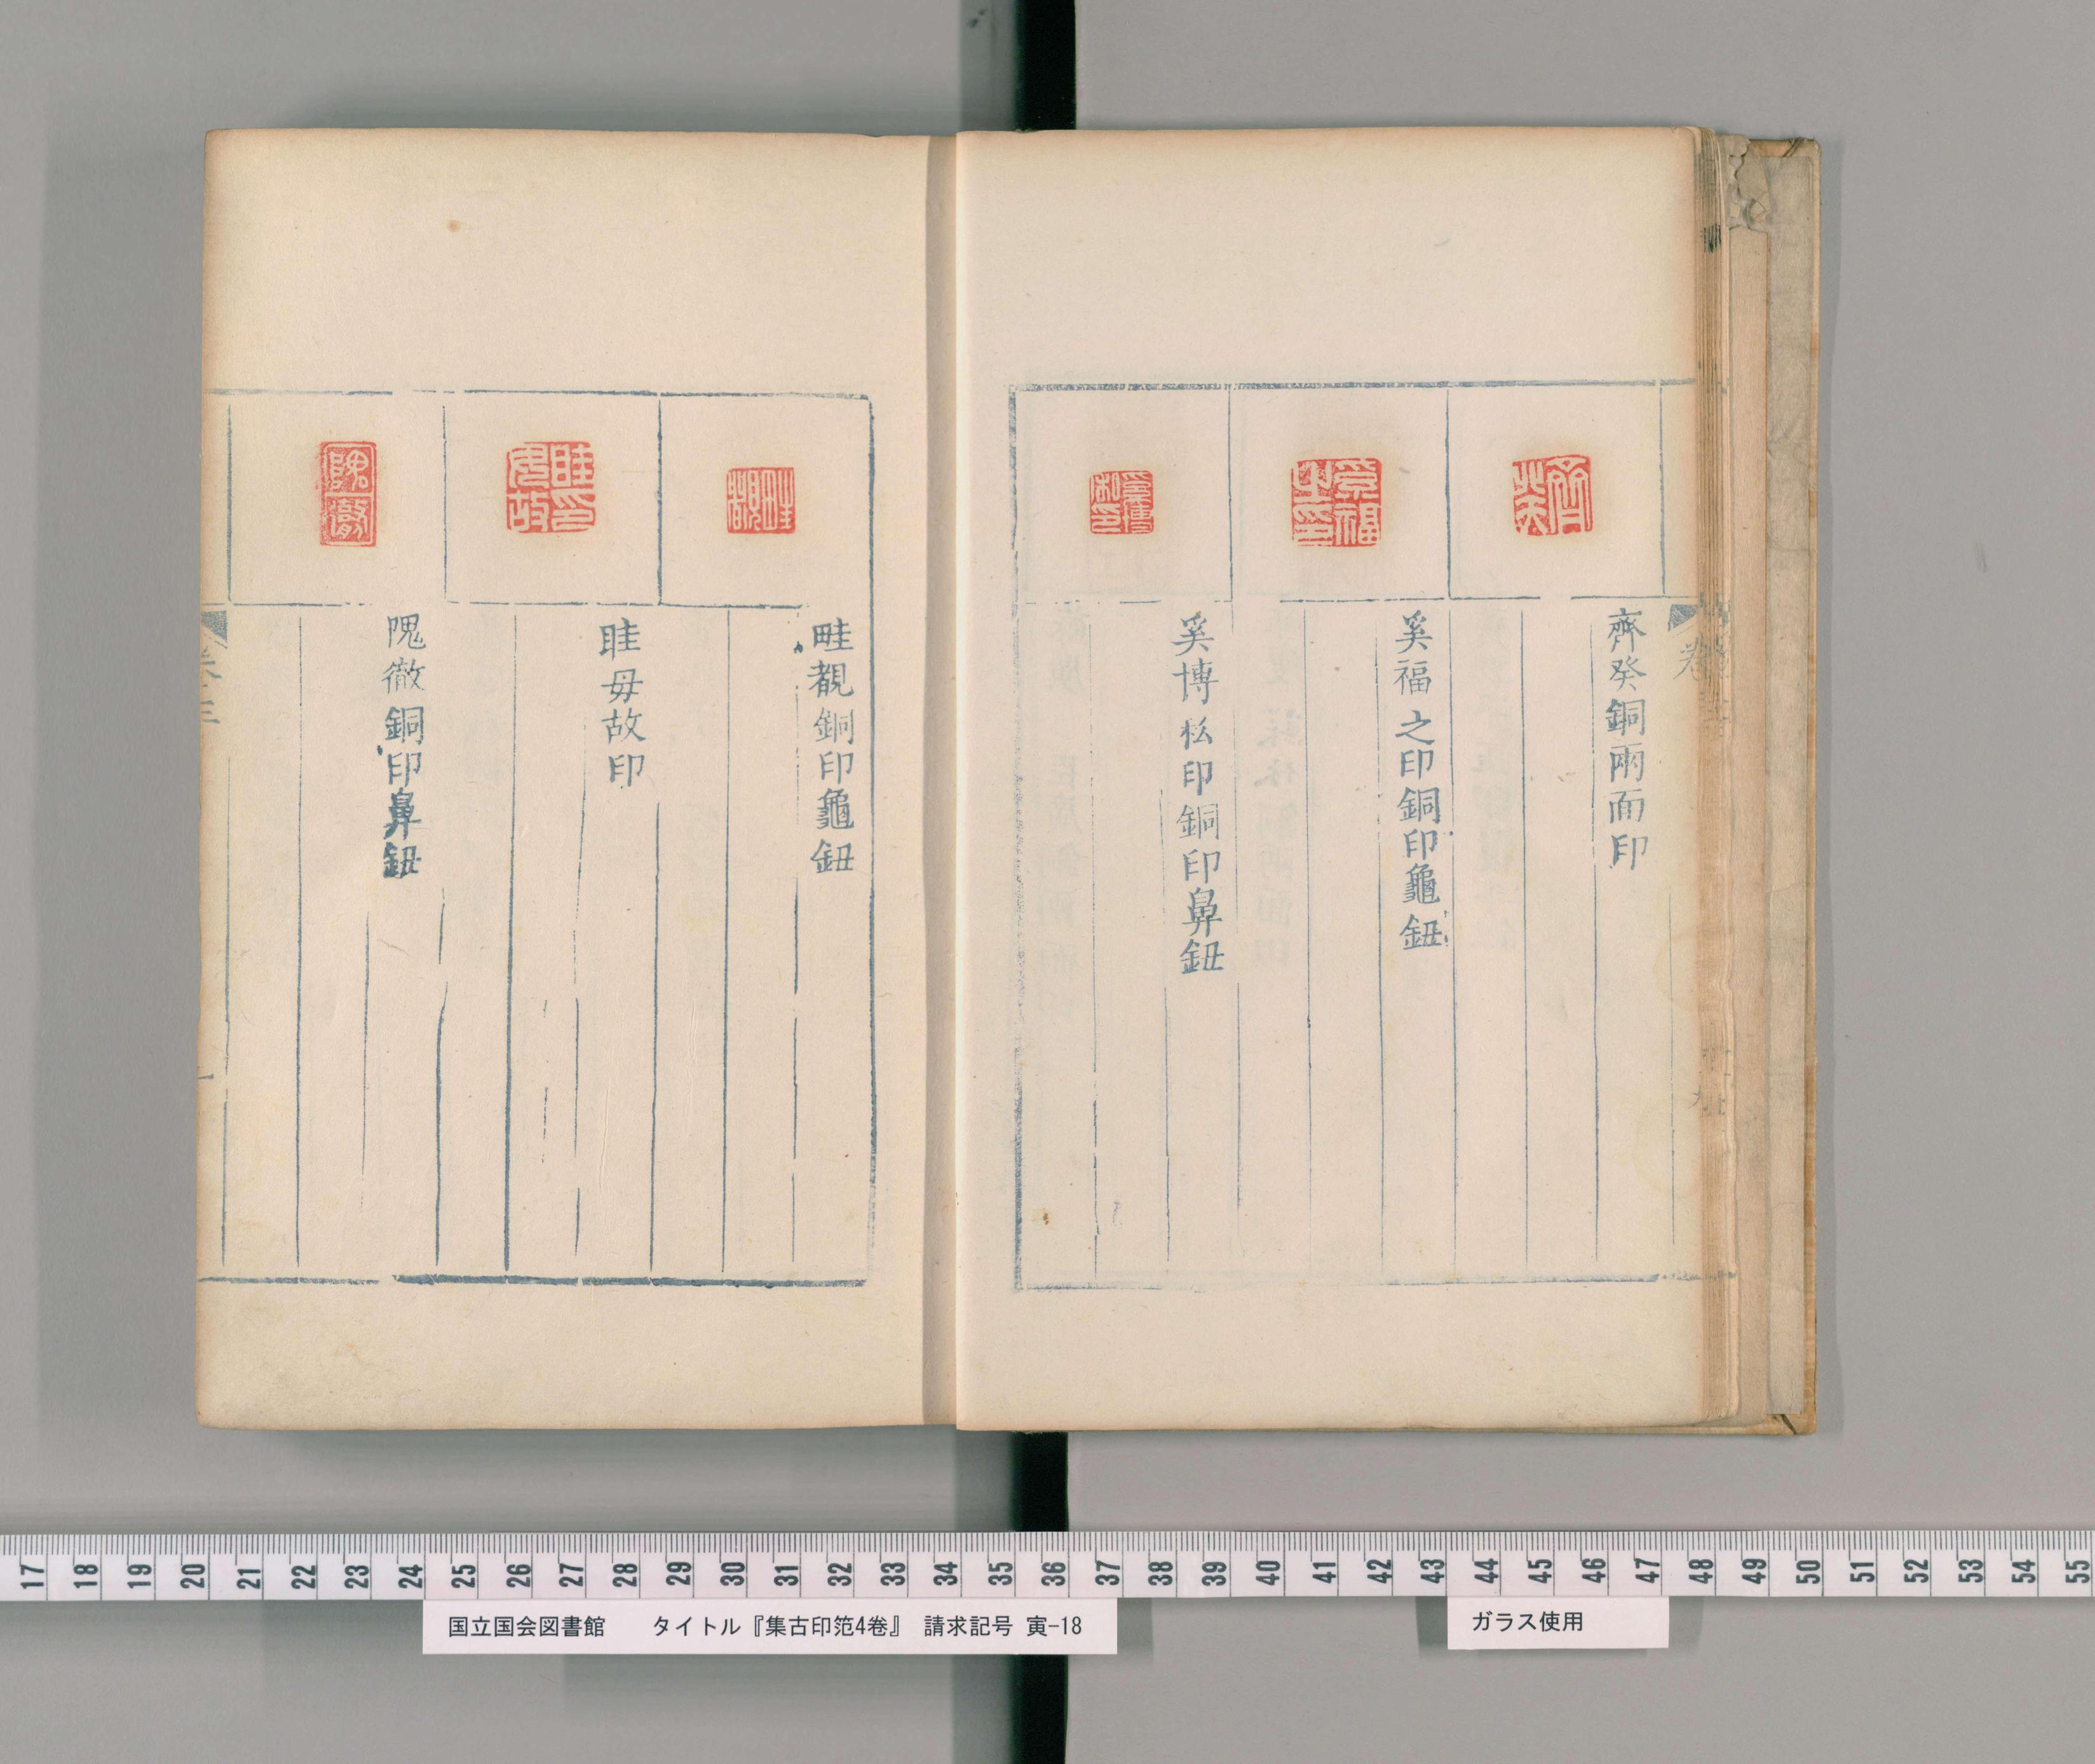 齊癸銅兩面印
奚福之印銅印龜鈕
奚博松印銅印鼻鈕
畦覩銅印龜鈕
眭毋故印
隗徹銅印鼻鈕
卷三
17 18 19 20 21 22 23 24 25 26 27 28 29 30 31 32 33 34 35 36 37 38 39 40 41 42 43 44 45 46 47 48 49 50 51 52 53 54 55
国立国会図書館 タイトル『集古印笵4巻』 請求記号 寅-18
ガラス使用